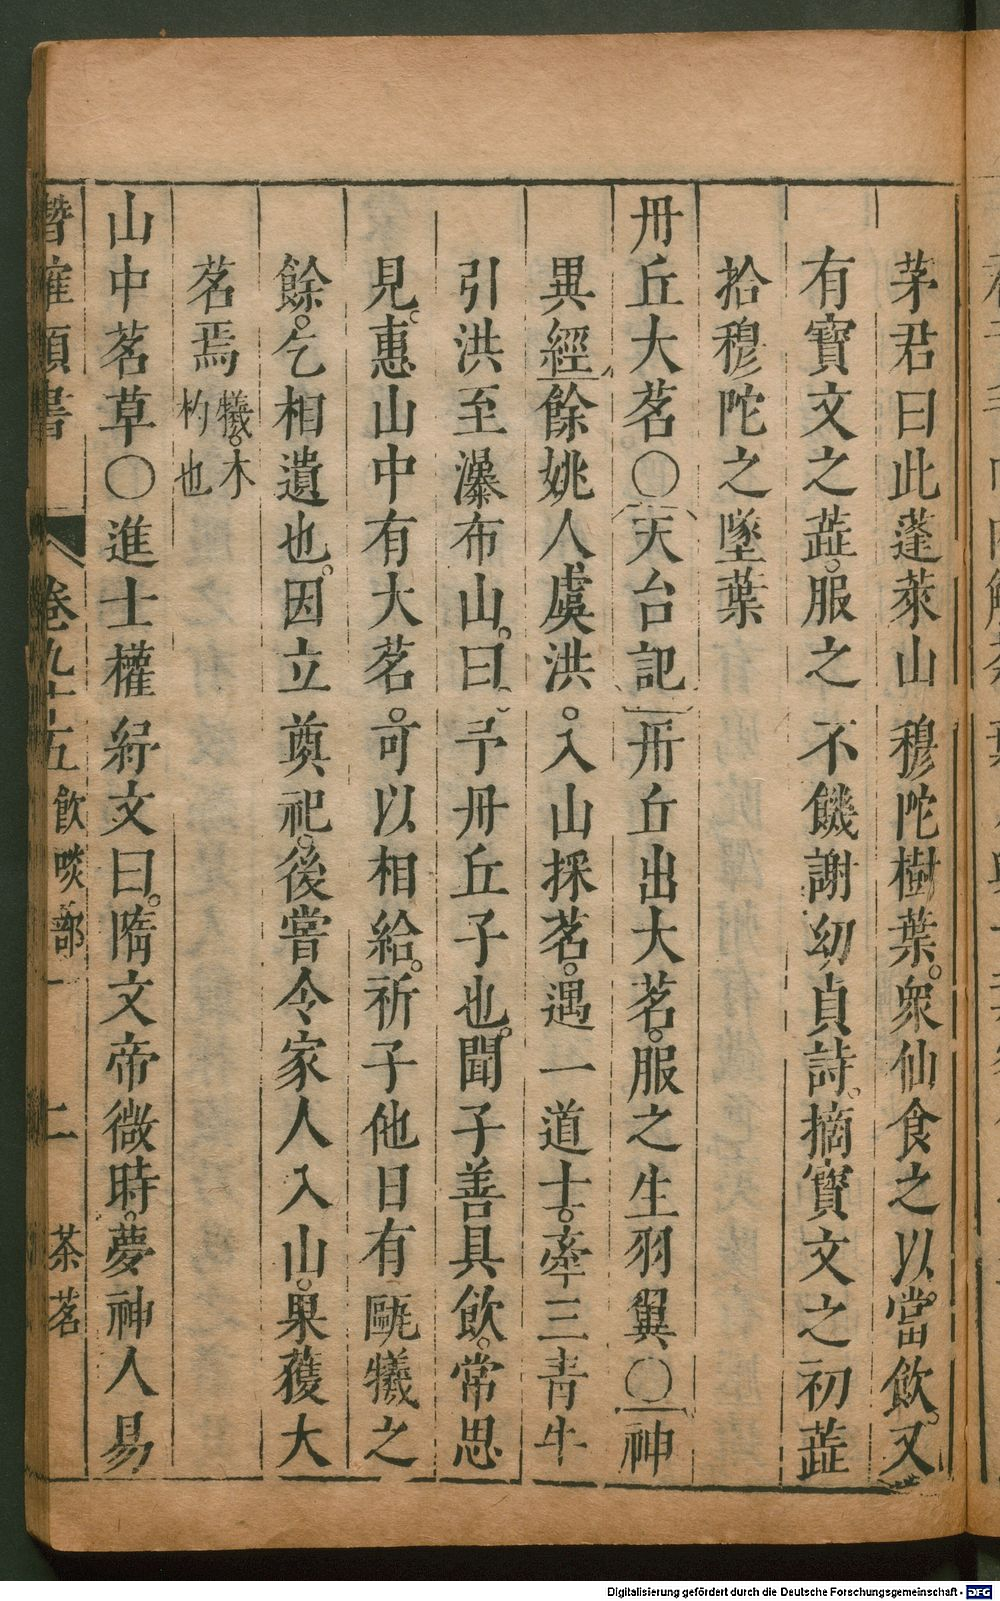 茅君曰此蓬萊山穆陀樹葉。衆仙食之以當飲。又
有寶文之蕋。服之不饑謝幼貞詩。摘寶文之初蕋
拾穆陀之墜葉
丹丘大茗○天台記丹丘出大茗。服之生羽翼○神
異經餘姚人虞洪。入山採茗。遇一道士。牽三青牛
引洪至瀑布山。曰。予丹丘子也。聞子善具飲。常思
見。惠山中有大茗。可以相給。祈子他日有甌犧之
餘。乞相遺也。因立奠祀。後嘗令家人入山。果獲大
茗焉犧。木
杓也
山中茗草○進士權紓文曰。隋文帝微時。夢神人易
潛確類書 卷九十五 飲啖部一 二 茶茗
Digitalisierung gefördert durch die Deutsche Forschungsgemeinschaft - DFG